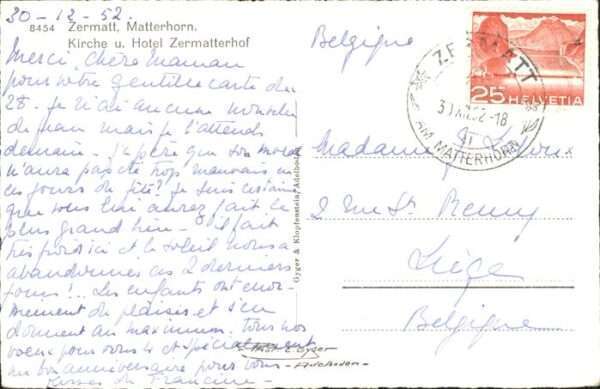 30-12-52.
8454 Zermatt, Matterhorn.
Kirche u. Hotel Zermatterhof
Merci, chère Maman
pour votre gentille carte du
28. Je n'ai aucune nouvelle
de Jean mais je l'attends
demain. J'espère que son moral
n'aura pas été trop mauvais en
ces jours de fête? Je suis certaine
que vous lui aurez fait le
plus grand bien. Il fait
très froid ici et le soleil nous a
abandonnés ces 2 derniers
jours!.. Les enfants ont énor-
mément de plaisirs et s'en
donnent au maximum. Tous nos
voeux pour vous et spécialement
un bon anniversaire pour vous.
Francine
Gyger & Klopfenstein, Adelboden
Phot. E. Gyger
Adelboden
Belgique
ZERMATT
AM MATTERHORN
25 HELVETIA
Madame
2 rue St. Remy
Liège
Belgique